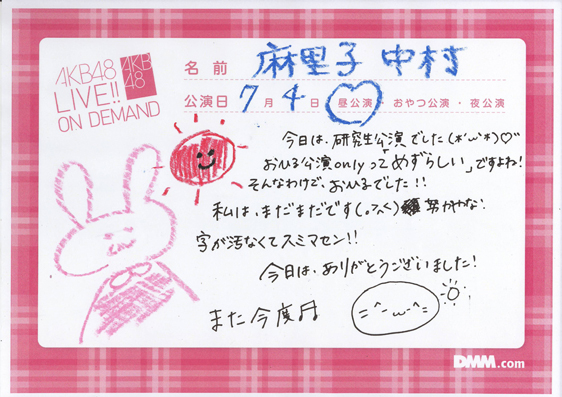 AKB48
LIVE!!
ON DEMAND
AKB
48
名前 麻里子 中村
公演日 7月4日 昼公演・おやつ公演・夜公演
今日は、研究生公演でした(*'ω'*)♡
おひる公演onlyって「めずらしい」ですよね!
そんなわけで、おひるでした!!
私は、まだまだです(。>_<)
字が汚なくてスミマセン!!
今日は、ありがとうございました!
また今度♫
=^-ω-^=
DMM.com